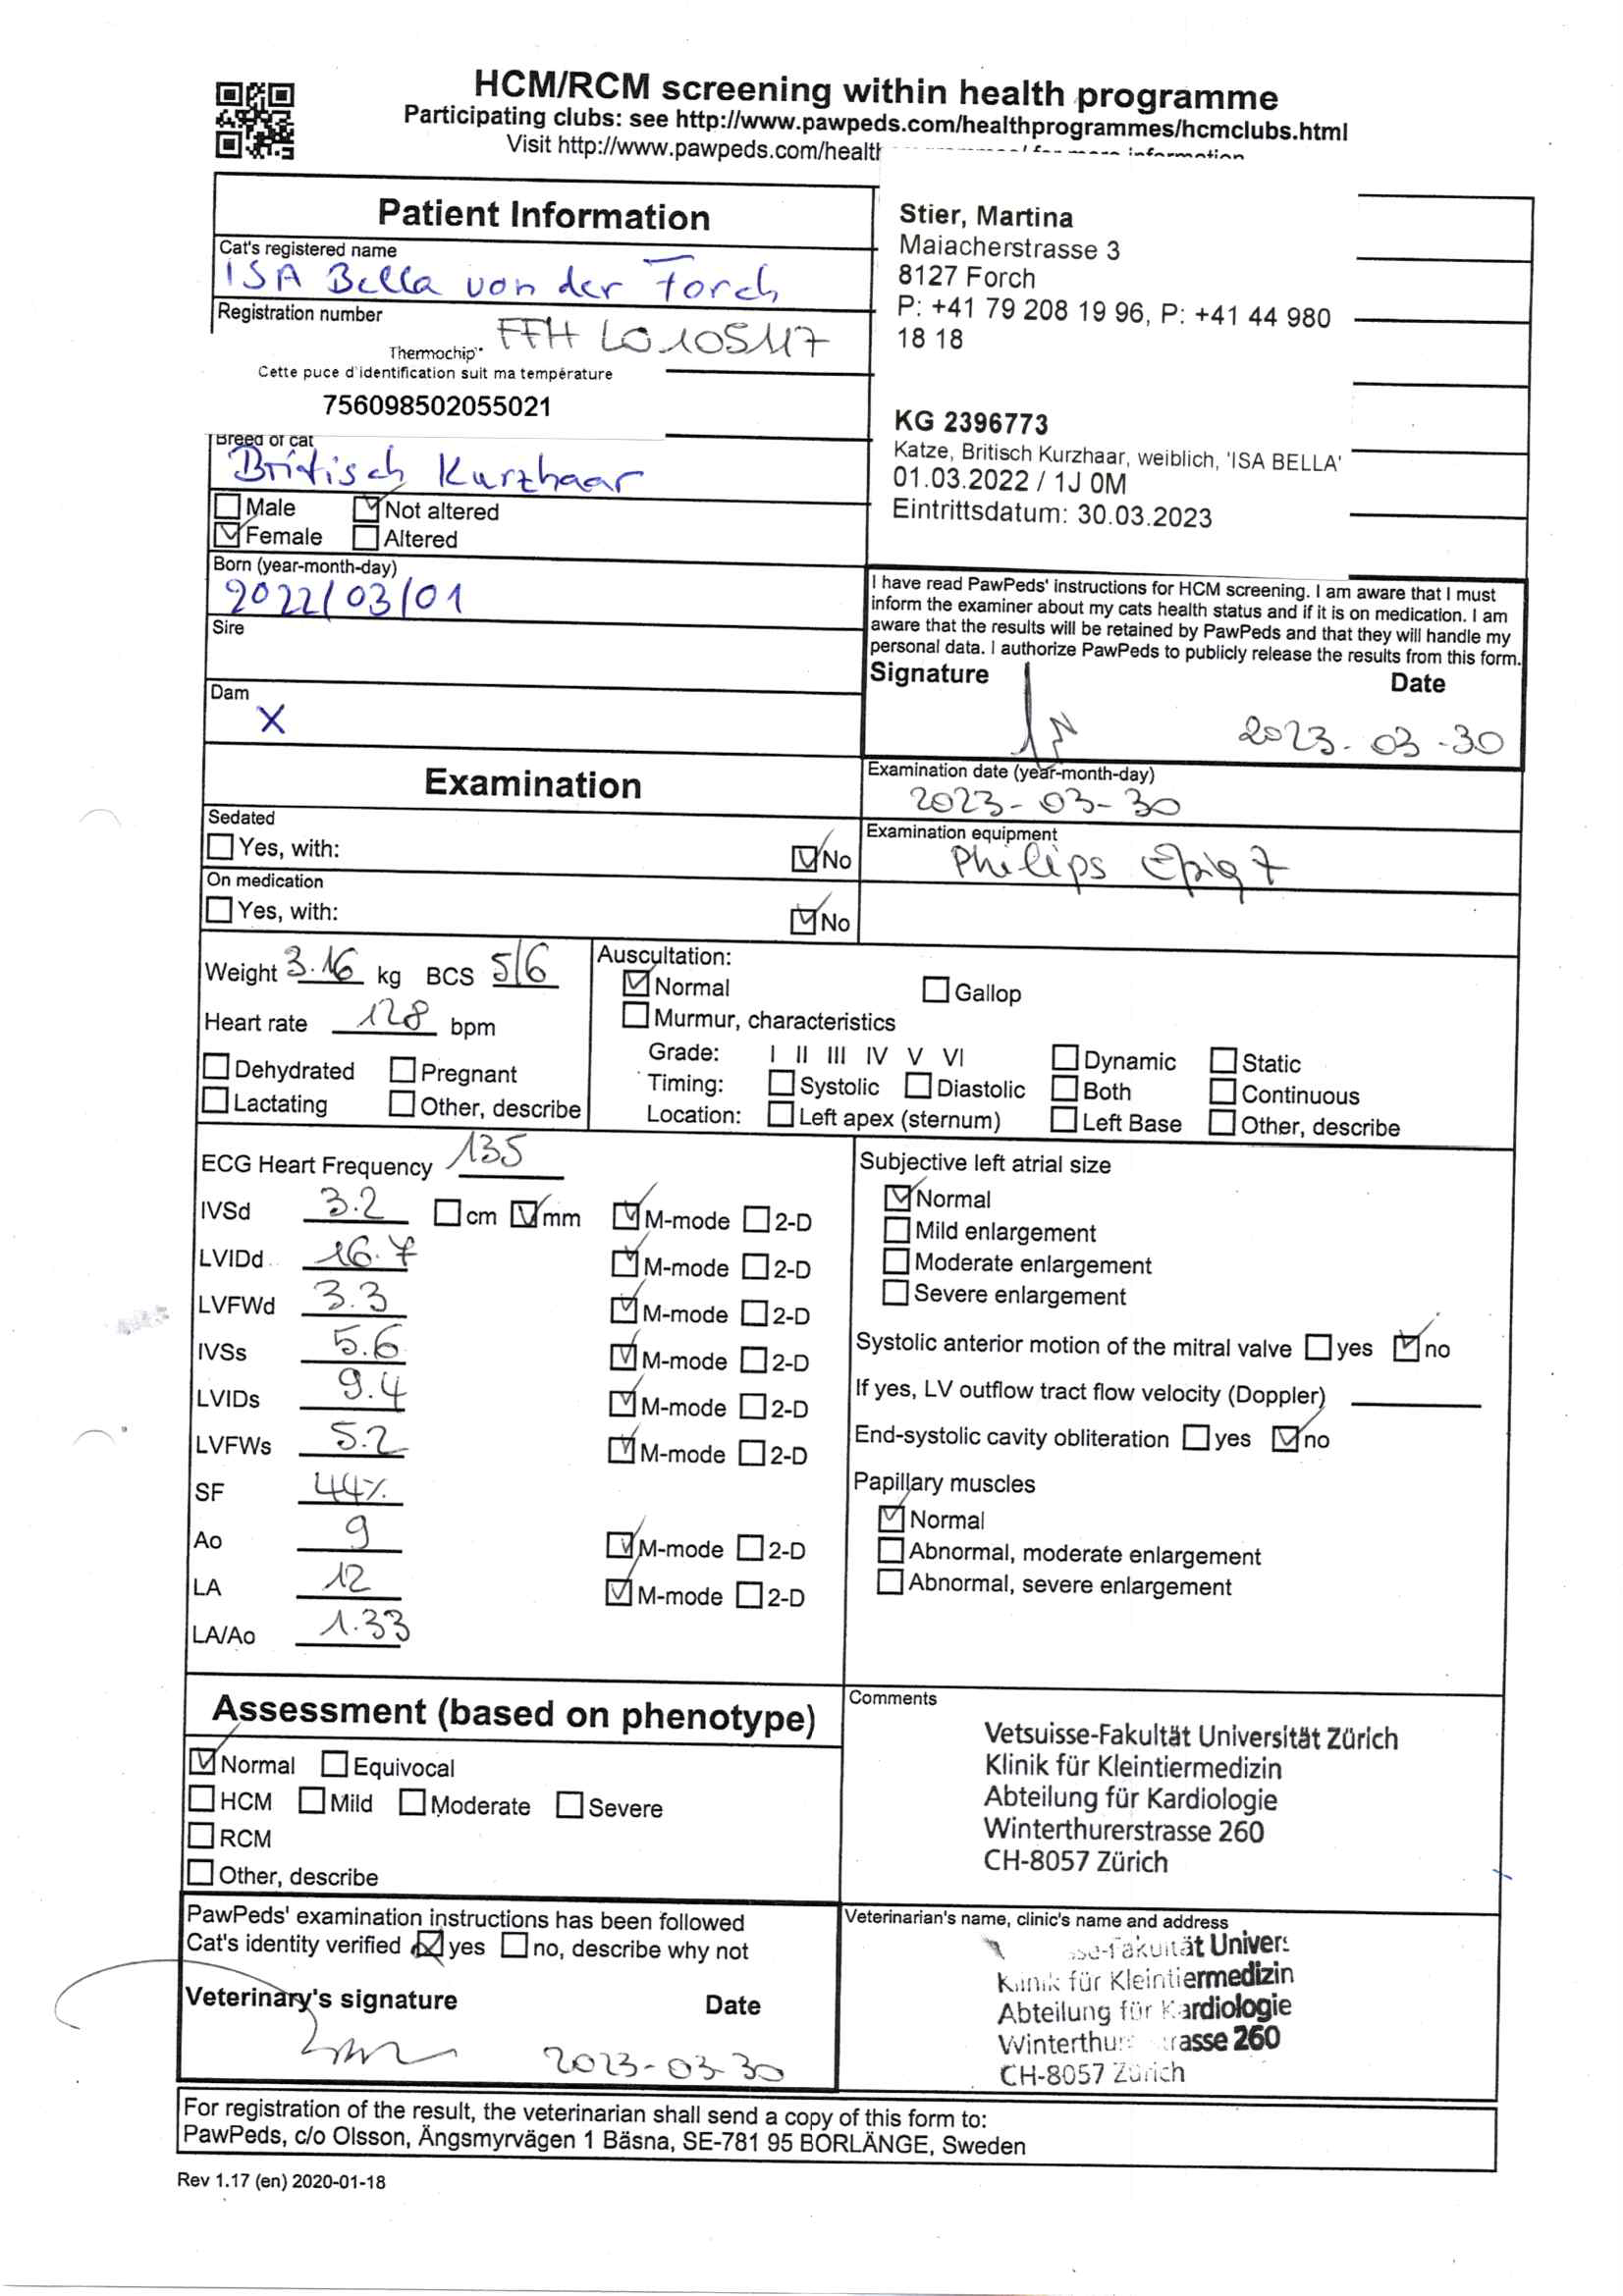 HCM/RCM screening within health programme
Participating clubs: see http://www.pawpeds.com/healthprogrammes/hcmclubs.html
Visit http://www.pawpeds.com/health for more information
Patient Information
Cat's registered name
ISA Bella von der Forch
Registration number
FFH LO 105117
Thermochip™
Cette puce d'identification suit ma température
756098502055021
Breed of cat
Britisch Kurzhaar
Male Not altered
Female Altered
Born (year-month-day)
2022/03/01
Sire
Dam
X
Stier, Martina
Maiacherstrasse 3
8127 Forch
P: +41 79 208 19 96, P: +41 44 980
18 18
KG 2396773
Katze, Britisch Kurzhaar, weiblich, 'ISA BELLA'
01.03.2022 / 1J 0M
Eintrittsdatum: 30.03.2023
I have read PawPeds' instructions for HCM screening. I am aware that I must
inform the examiner about my cats health status and if it is on medication. I am
aware that the results will be retained by PawPeds and that they will handle my
personal data. I authorize PawPeds to publicly release the results from this form.
Signature Date
2023-03-30
Examination
Examination date (year-month-day)
2023-03-30
Sedated
Yes, with: No
Examination equipment
Philips Epiq 7
On medication
Yes, with: No
Weight 3.16 kg BCS 5/6
Heart rate 128 bpm
Dehydrated Pregnant
Lactating Other, describe
Auscultation:
Normal Gallop
Murmur, characteristics
Grade: I II III IV V VI Dynamic Static
Timing: Systolic Diastolic Both Continuous
Location: Left apex (sternum) Left Base Other, describe
ECG Heart Frequency 135
IVSd 3.2 cm mm M-mode 2-D
LVIDd 16.7 M-mode 2-D
LVFWd 3.3 M-mode 2-D
IVSs 5.6 M-mode 2-D
LVIDs 9.4 M-mode 2-D
LVFWs 5.2 M-mode 2-D
SF 44%
Ao 9 M-mode 2-D
LA 12 M-mode 2-D
LA/Ao 1.33
Subjective left atrial size
Normal
Mild enlargement
Moderate enlargement
Severe enlargement
Systolic anterior motion of the mitral valve yes no
If yes, LV outflow tract flow velocity (Doppler)
End-systolic cavity obliteration yes no
Papillary muscles
Normal
Abnormal, moderate enlargement
Abnormal, severe enlargement
Assessment (based on phenotype)
Normal Equivocal
HCM Mild Moderate Severe
RCM
Other, describe
Comments
Vetsuisse-Fakultät Universität Zürich
Klinik für Kleintiermedizin
Abteilung für Kardiologie
Winterthurerstrasse 260
CH-8057 Zürich
PawPeds' examination instructions has been followed
Cat's identity verified yes no, describe why not
Veterinary's signature Date
2023-03-30
Veterinarian's name, clinic's name and address
Klinik für Kleintiermedizin
Abteilung für Kardiologie
rasse 260
CH-8057 Zürich
For registration of the result, the veterinarian shall send a copy of this form to:
PawPeds, c/o Olsson, Ängsmyrvägen 1 Bäsna, SE-781 95 BORLÄNGE, Sweden
Rev 1.17 (en) 2020-01-18